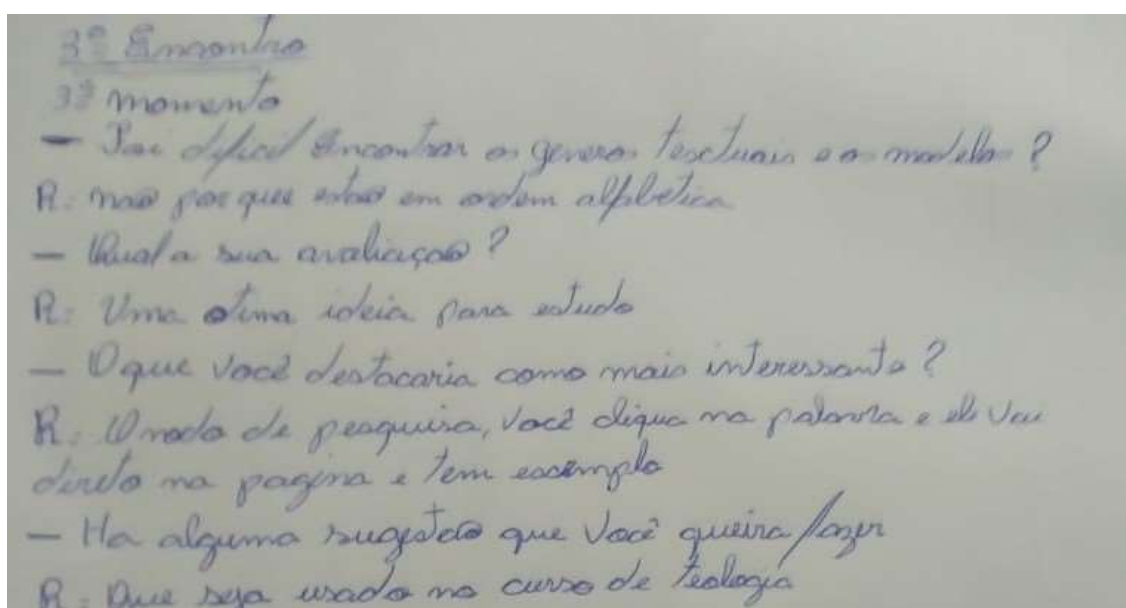 3º Encontro
3º momento
— Foi dificil encontrar os generos textuais e os modelos ?
R: não porque estão em ordem alfabetica
— Qual a sua avaliação ?
R: Uma otima ideia para estudo
— O que você destacaria como mais interessante ?
R: O modo de pesquisa, você cliqua na palavra e ele vai
direto na pagina e tem exemplo
— Ha alguma sugestão que você queira fazer
R: Que seja usado no curso de teologia